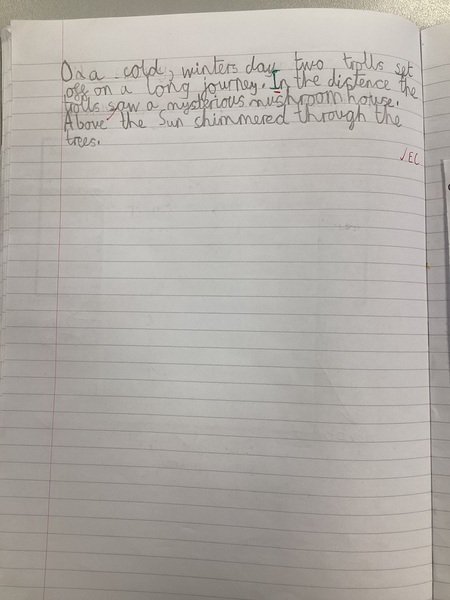 On a cold, winters day two trolls set
off on a long journey. In the distence the
trolls saw a mysterious mushroom house.
Above the Sun shimmered through the
trees.